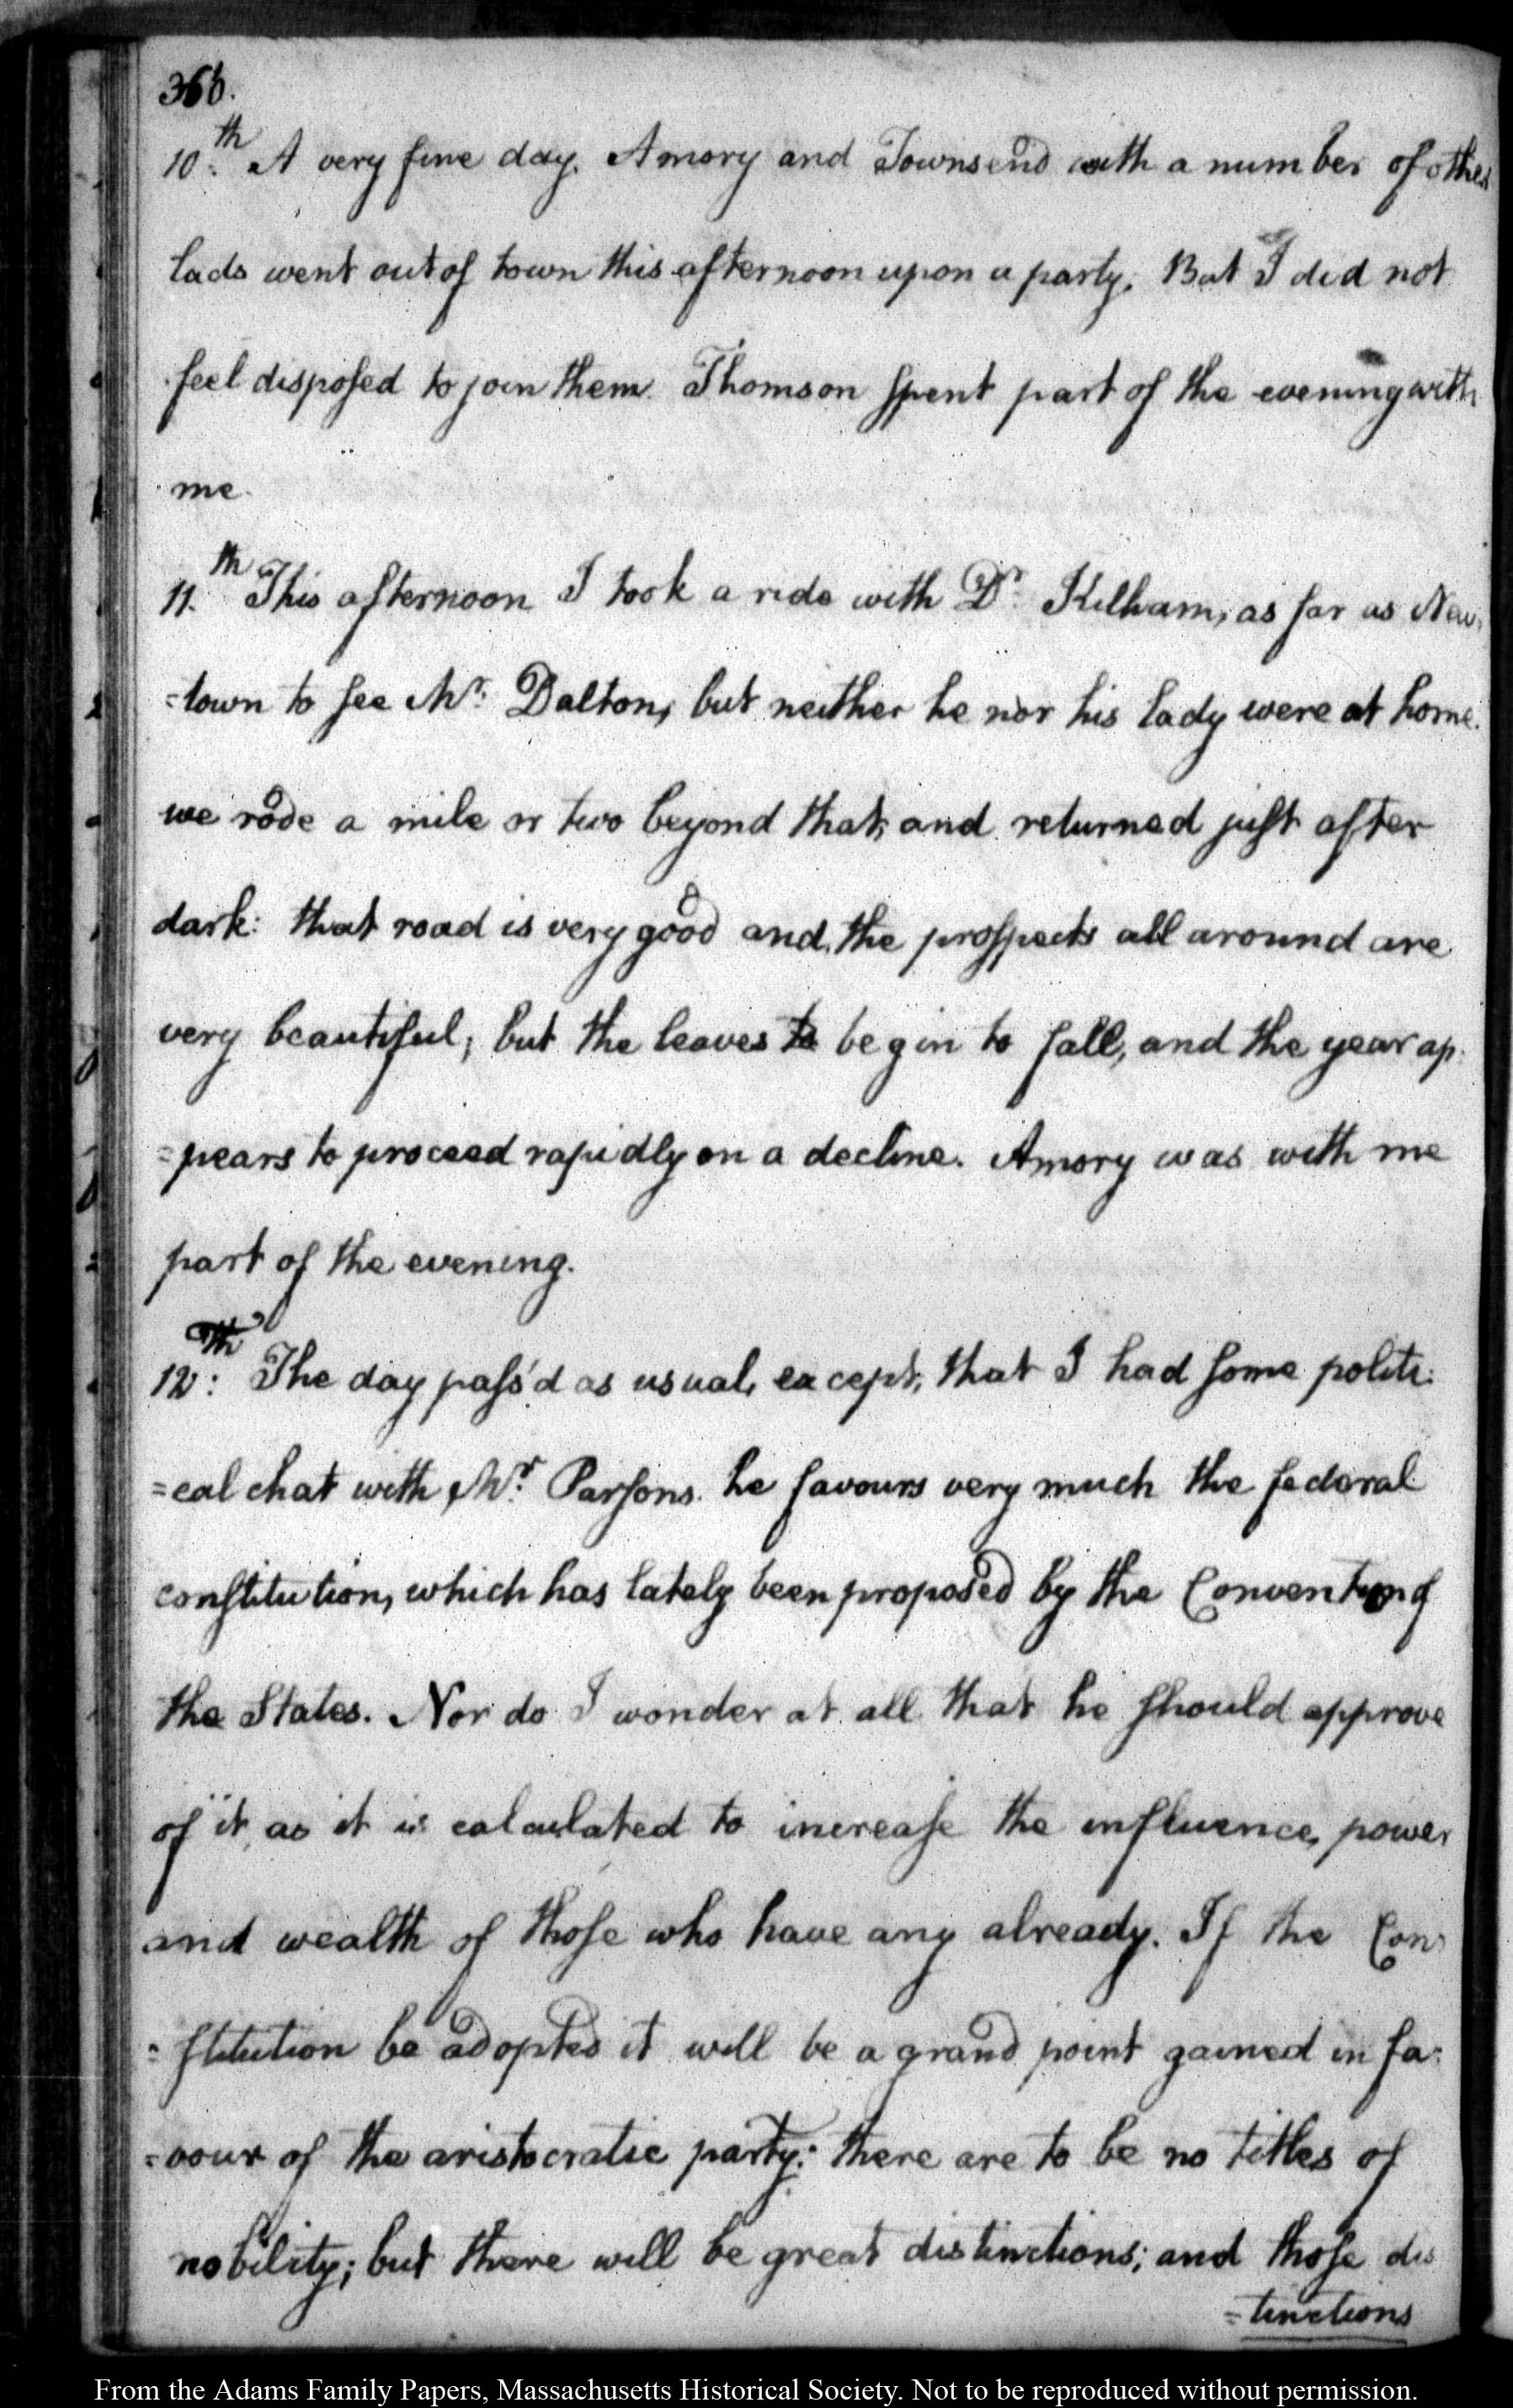 366.
10.th A very fine day. Amory and Townsend with a number of other
lads went out of town this afternoon upon a party. But I did not
feel disposed to join them. Thomson spent part of the evening with
me.
11.th This afternoon I took a ride with Dr. Kilham, as far as New
=town to see Mr. Dalton, but neither he nor his lady were at home.
we rode a mile or two beyond that, and returned just after
dark: that road is very good and, the prospects all around are
very beautiful; but the leaves to begin to fall, and the year ap
=pears to proceed rapidly on a decline. Amory was with me
part of the evening.
12.th The day pass'd as usual, except, that I had some politi:
=cal chat with Mr. Parsons. he favours very much the federal
constitution, which has lately been proposed by the Convention of
the States. Nor do I wonder at all that he should approve
of it, as it is calculated to increase the influence, power
and wealth of those who have any already. If the Con
=stitution be adopted it will be a grand point gained in fa:
=vour of the aristocratic party: there are to be no titles of
nobility; but there will be great distinctions; and those dis
=tinctions
From the Adams Family Papers, Massachusetts Historical Society. Not to be reproduced without permission.